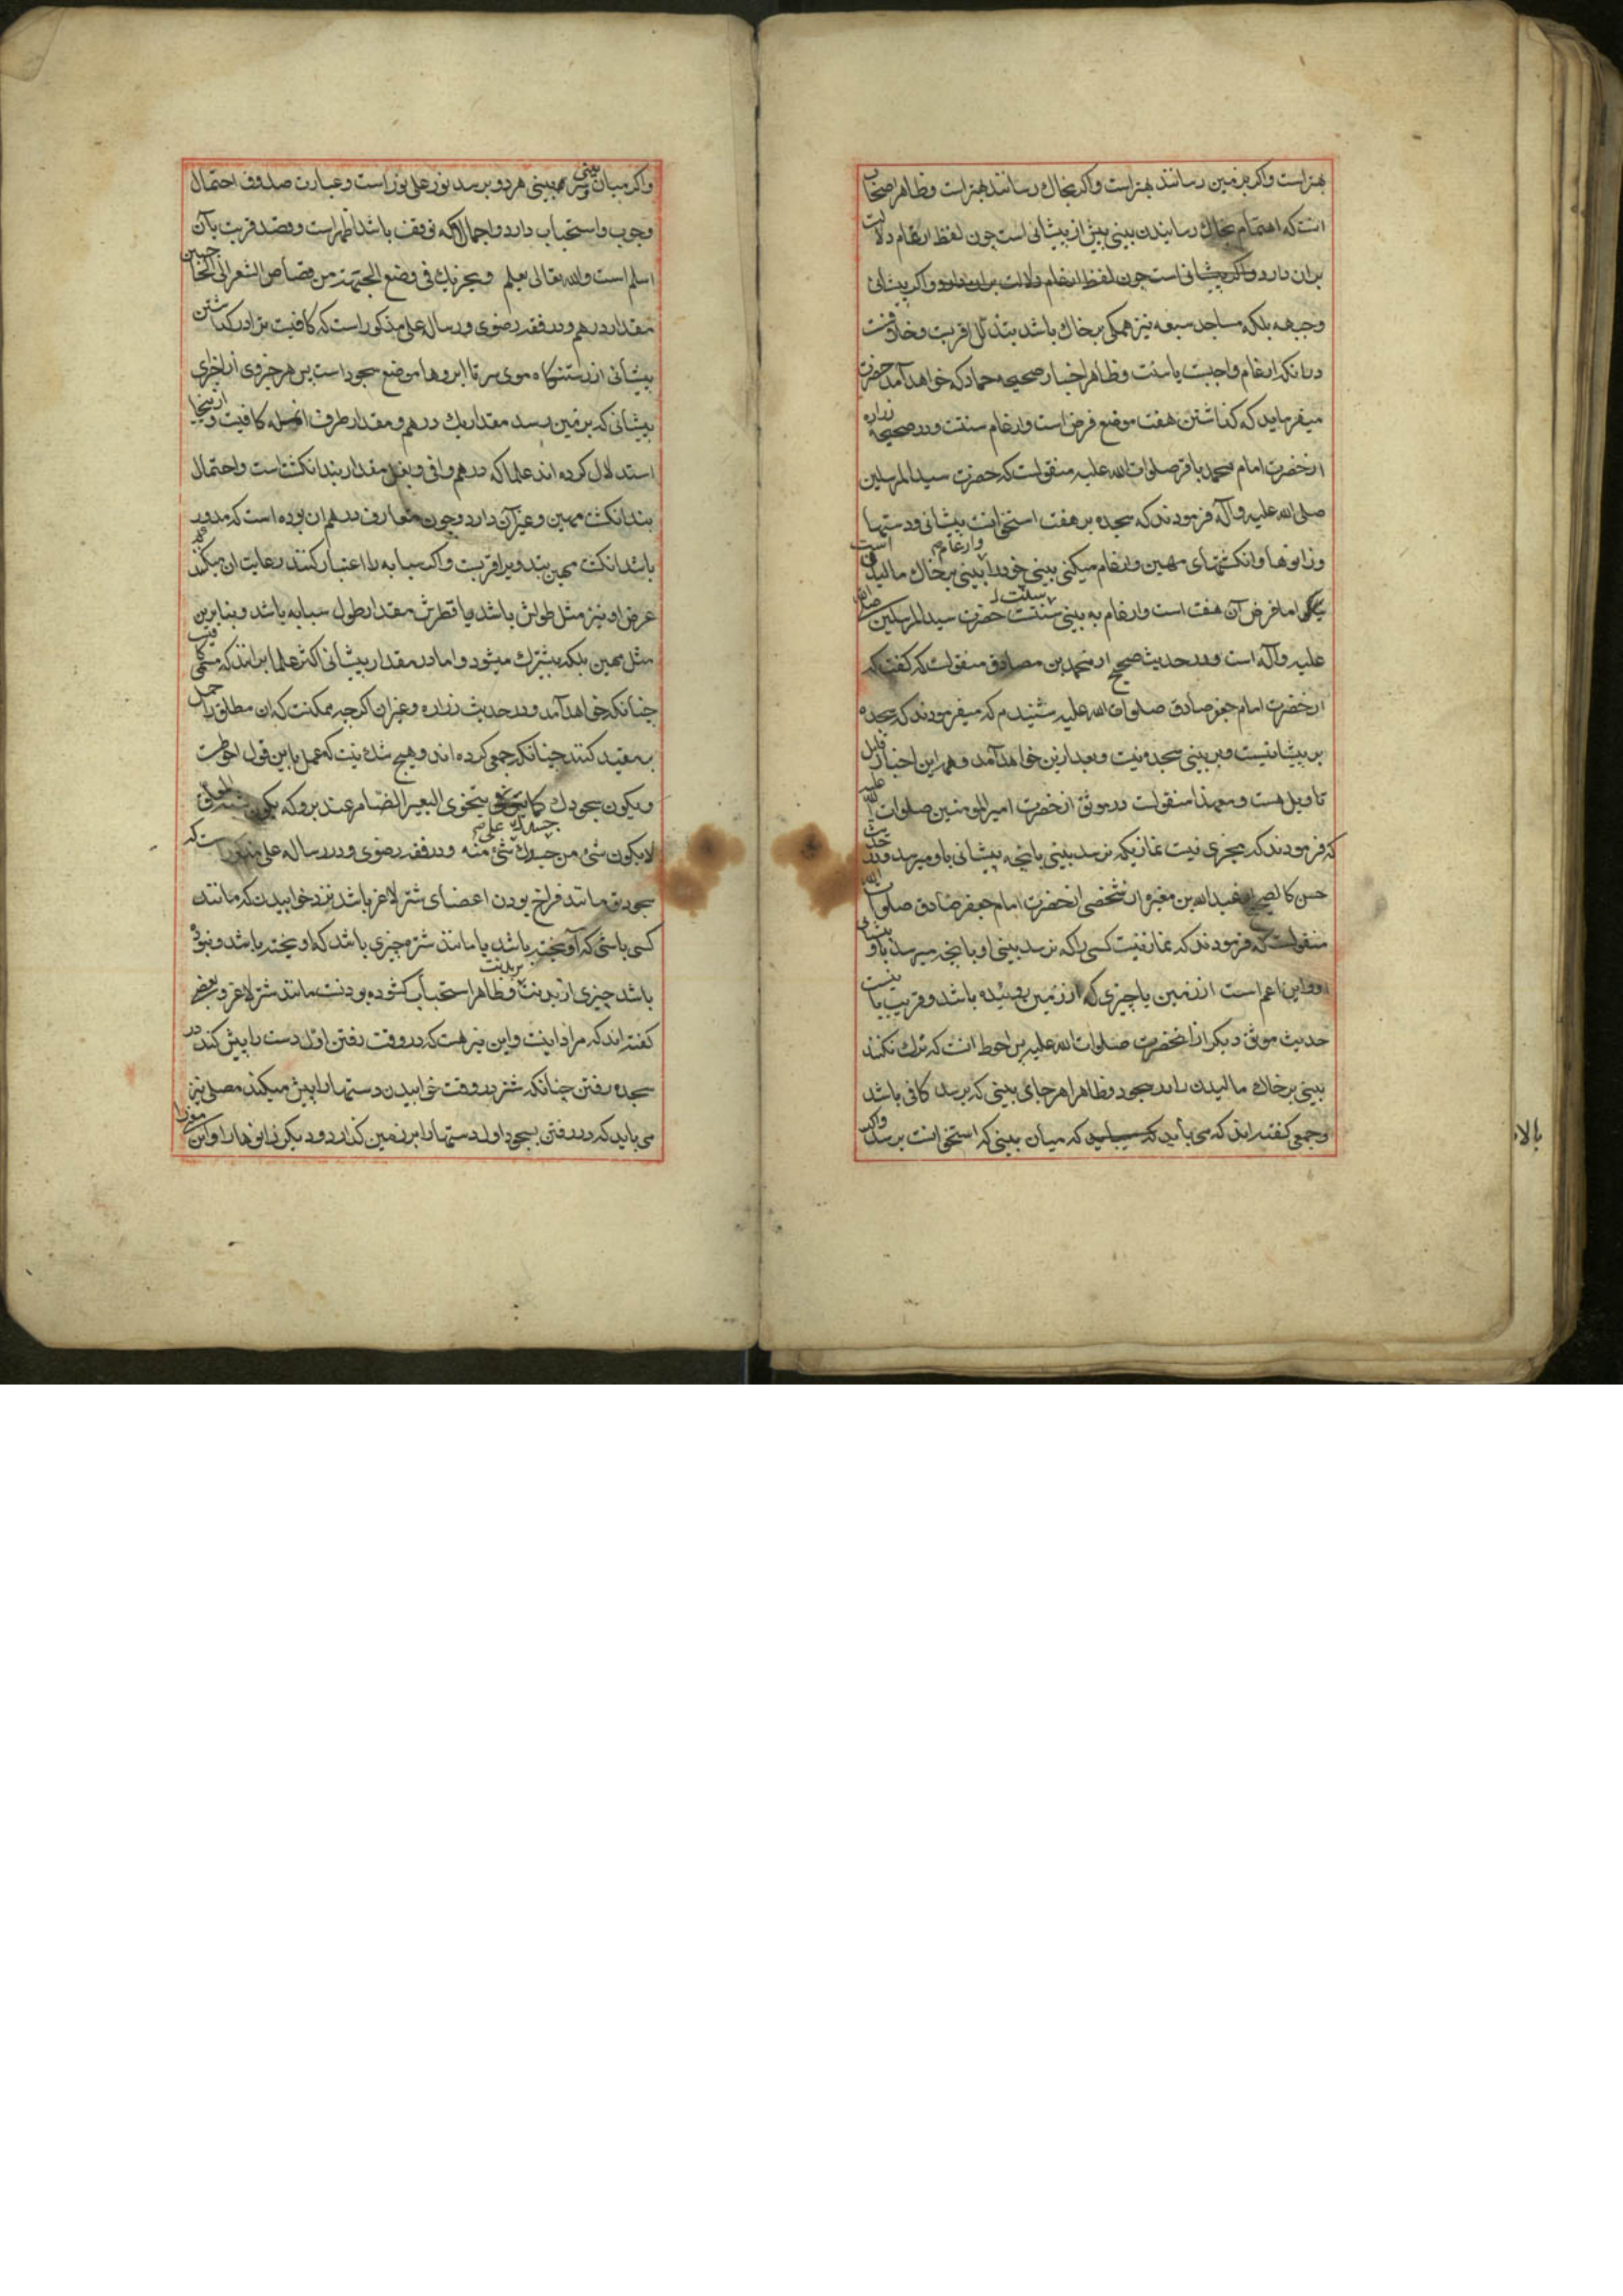 بهتر است واکر بزمین رسانند بهتر است واکر بخاك رسانند بهتر است وظاهر اصحاب
انست که اهتمام بخاك رسانیدن بینی بیش از پیشانی است چون لفظ ارغام دلالت
بران دارد واکر پیشانی است چون لفظ ارغام دلالت بران دارد واکر پیشانی
وجبهه بلکه مساجد سبعه نیز همکی برخاك باشد بتذلل اقربست وخلافست
درانکه ارغام واجبست یا سنت وظاهر اخبار صحیحه حماد که خواهد آمد حضرت
میفرماید که کذاشتن هفت موضع فرض است وارغام سنتست ودر صحیحه زراره
ازحضرت امام محمد باقر صلوات الله علیه منقولست که حضرت سید المرسلین
صلی الله علیه وآله فرمودند که سجده بر هفت استخوانست پیشانی ودستها
وزانوها وانکشتهای مهین وارغام میکنی بینی خود را بینی برخاك مالیدن
وارغام است
اما فرض آن هفت است وارغام به بینی سنتست حضرت سید المرسلین صلی الله
سنت
علیه وآله است ودر حدیث صحیح از محمد بن مصادف منقولست که کفت که
ازحضرت امام جعفر صادق صلوات الله علیه شنیدم که میفرمودند که سجده
بر پیشانیست وبر بینی سجده نیست وبعد ازین خواهد آمد وهمه این اخبار قابل
تاویل هست ومعهذا منقولست در موثق ازحضرت امیر المومنین صلوات الله علیه
که فرمودند که مجزی نیست نمازیکه نرسد بینی بانچه پیشانی باو میرسد ودر حدیث
حسن کالصحیح از عبدالله بن مغیره از شخصی ازحضرت امام جعفر صادق صلوات الله
منقولست که فرمودند که نماز نیست کسی را که نرسد بینی او بانچه میرسد باو پیشانی
واین اعم است از زمین یا چیزی که از زمین روئیده باشد وقریب باینست
حدیث موثق دیکر از انحضرت صلوات الله علیه پس احوط انست که ترك نکنند
بینی برخاك مالیدن را در سجود وظاهرا هر جای بینی که برسد کافی باشد
وجمعی کفته اند که می باید که میان بینی که استخوانست برسد واکر
بالا
واکر میان بینی وسر بینی هر دو برسد نور علی نور است وعبارت صدوق احتمال
وجوب واستحباب دارد واجمالا که توقف باشد اظهر است وقصد قربت بآن
اسلم است والله تعالی یعلم ویجزیك فی وضع الجبهة من قصاص الشعر الی الحاجبین
مقدار درهم ودر فقه رضوی ورساله علی مذکور است که کافیست ترا در کذاشتن
پیشانی از رستنکاه موی سر تا ابروها موضع سجود است پس هر جزوی از اجزای
پیشانی که بر زمین رسد مقدار یك درهم ومقدار طرف انمله کافیست وازینجا
استدلال کرده اند علما که درهم وافی وبغلی مقدار بند انکشتست واحتمال
بند انکشت مهین وغیر آن دارد وچون متعارف درهم ان بوده است که مدور
باشد انکشت مهین بتدویر اقربست واکر سبابه را اعتبار کنند رعایت ان میکنند که
عرض او نیز مثل طولش باشد یا قطرش مقدار طول سبابه باشد وبنا برین
مثل مهین بلکه بیشترك میشود واما در مقدار پیشانی اکثر علما برانند که مسمی کافیست
چنانکه خواهد آمد ودر حدیث زراره وغیر ان اکرچه ممکنست که ان مطلق را حمل
بر مقید کنند چنانکه جمعی کرده اند وهیچ شك نیست که عمل باین قول احوطست
ویکون سجودك کما یتخوی البعیر الضامر عند بروکه یکون شبه المعلق
لا یکون شئ من جسدك علی شئ منه ودر فقه رضوی ودر رساله علی مذکور است که
سجود تو مانند فراخ بودن اعضای شتر لاغر باشد نزد خوابیدن که مانند
کسی باشی که آویخته باشد یا مانند شتر وچیزی باشد که اویخته باشد ونبوده
باشد چیزی از بدنت بر بدنت وظاهرا استحباب کشوده بودنست مانند شتر لاغر وبعضی
کفته اند که مراد اینست واین نیز هست که در وقت رفتن اول دست را پیش کند در
سجده رفتن چنانکه شتر در وقت خوابیدن دستها را پیش میکند مصلی نیز
می باید که در رفتن بسجود اول دستها را بر زمین کذارد ودیکر زانوها را واین